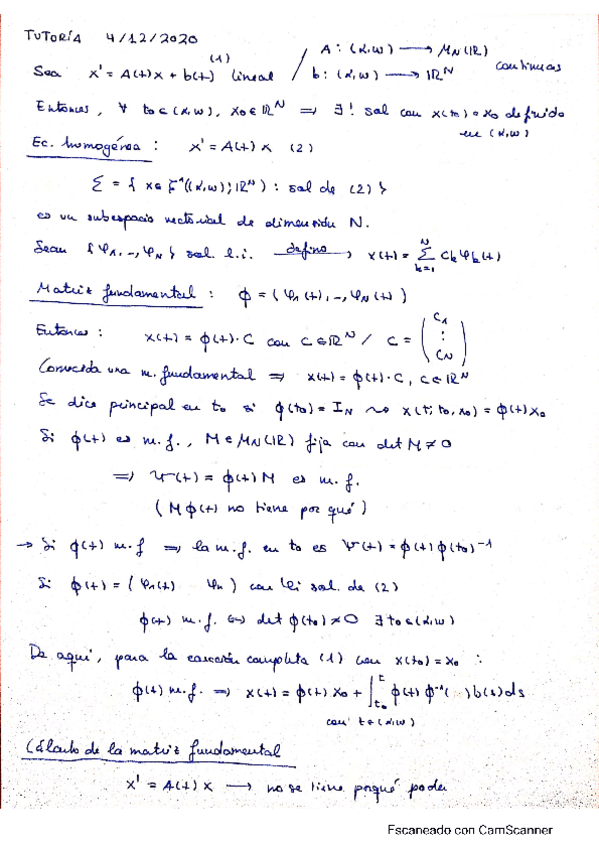 TUTORÍA 4/12/2020
Sea x' = A(t)x + b(t) (1) lineal / A: (α,ω) ⟶ M_N(ℝ) b: (α,ω) ⟶ ℝ^N continuas
Entonces, ∀ t₀ ∈ (α,ω), x₀ ∈ ℝ^N ⟹ ∃! sol con x(t₀) = x₀ definido
en (α,ω)
Ec. homogénea : x' = A(t)x (2)
Σ = { x ∈ ξ¹((α,ω);ℝ^N) : sol de (2) }
es un subespacio vectorial de dimensión N.
Sean {φ₁, .., φ_N} sol l.i. defino⟶ x(t) = Σ_{k=1}^{N} C_k φ_k(t)
Matriz fundamental : ϕ = (φ₁(t), .., φ_N(t))
Entonces : x(t) = ϕ(t)·C con C ∈ ℝ^N / C = (C₁ : C_N)
Conocida una m. fundamental ⟹ x(t) = ϕ(t)·C, C ∈ ℝ^N
Se dice principal en t₀ si ϕ(t₀) = I_N ⤳ x(t; t₀, x₀) = ϕ(t)x₀
Si ϕ(t) es m.f., M ∈ M_N(ℝ) fija con det M ≠ 0
⟹ ψ(t) = ϕ(t)M es m.f.
(Mϕ(t) no tiene por qué)
→ Si ϕ(t) m.f ⟹ la m.f. en t₀ es ψ(t) = ϕ(t)ϕ(t₀)⁻¹
Si ϕ(t) = (φ₁(t) φ_N) con φi sol. de (2)
ϕ(t) m.f. ⟺ det ϕ(t₀) ≠ 0 ∃ t₀ ∈ (α,ω)
De aquí, para la ecuación completa (1) con x(t₀) = x₀ :
ϕ(t) m.f. ⟹ x(t) = ϕ(t) x₀ + ∫_{t₀}^{t} ϕ(t) ϕ⁻¹( )b(s)ds
con t ∈ (α,ω)
Cálculo de la matriz fundamental
x' = A(t)x ⟶ no se tiene porqué poder
Escaneado con CamScanner